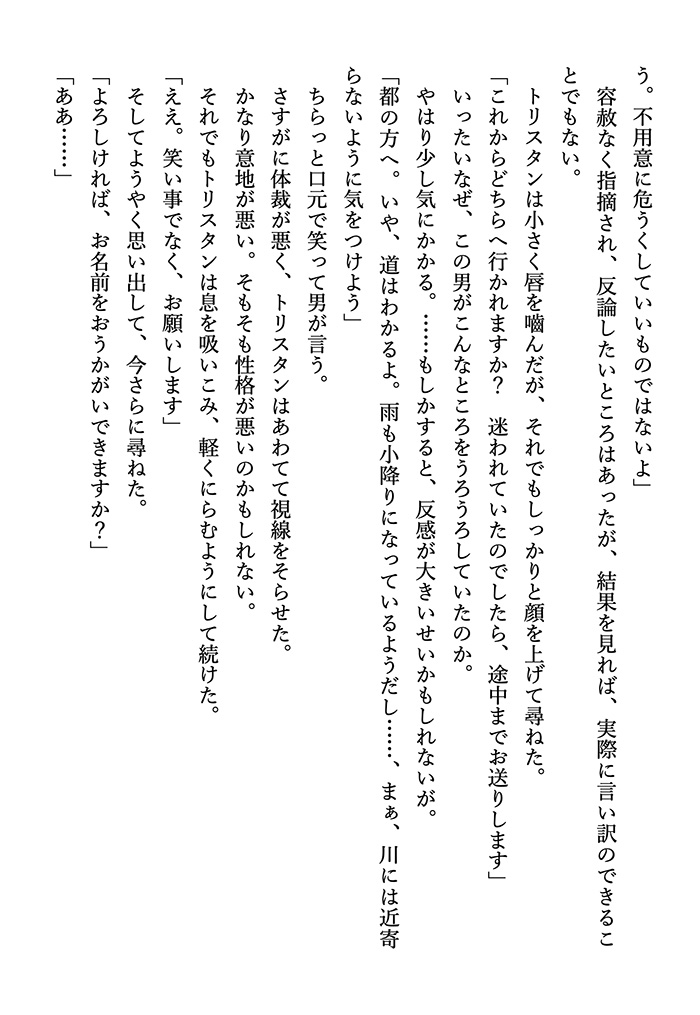 う。不用意に危うくしていいものではないよ」
　容赦なく指摘され、反論したいところはあったが、結果を見れば、実際に言い訳のできるこ
とでもない。
　トリスタンは小さく唇を嚙んだが、それでもしっかりと顔を上げて尋ねた。
「これからどちらへ行かれますか？　迷われていたのでしたら、途中までお送りします」
　いったいなぜ、この男がこんなところをうろうろしていたのか。
　やはり少し気にかかる。……もしかすると、反感が大きいせいかもしれないが。
「都の方へ。いや、道はわかるよ。雨も小降りになっているようだし……、まぁ、川には近寄
らないように気をつけよう」
　ちらっと口元で笑って男が言う。
　さすがに体裁が悪く、トリスタンはあわてて視線をそらせた。
　かなり意地が悪い。そもそも性格が悪いのかもしれない。
　それでもトリスタンは息を吸いこみ、軽くにらむようにして続けた。
「ええ。笑い事でなく、お願いします」
　そしてようやく思い出して、今さらに尋ねた。
「よろしければ、お名前をおうかがいできますか？」
「ああ……」